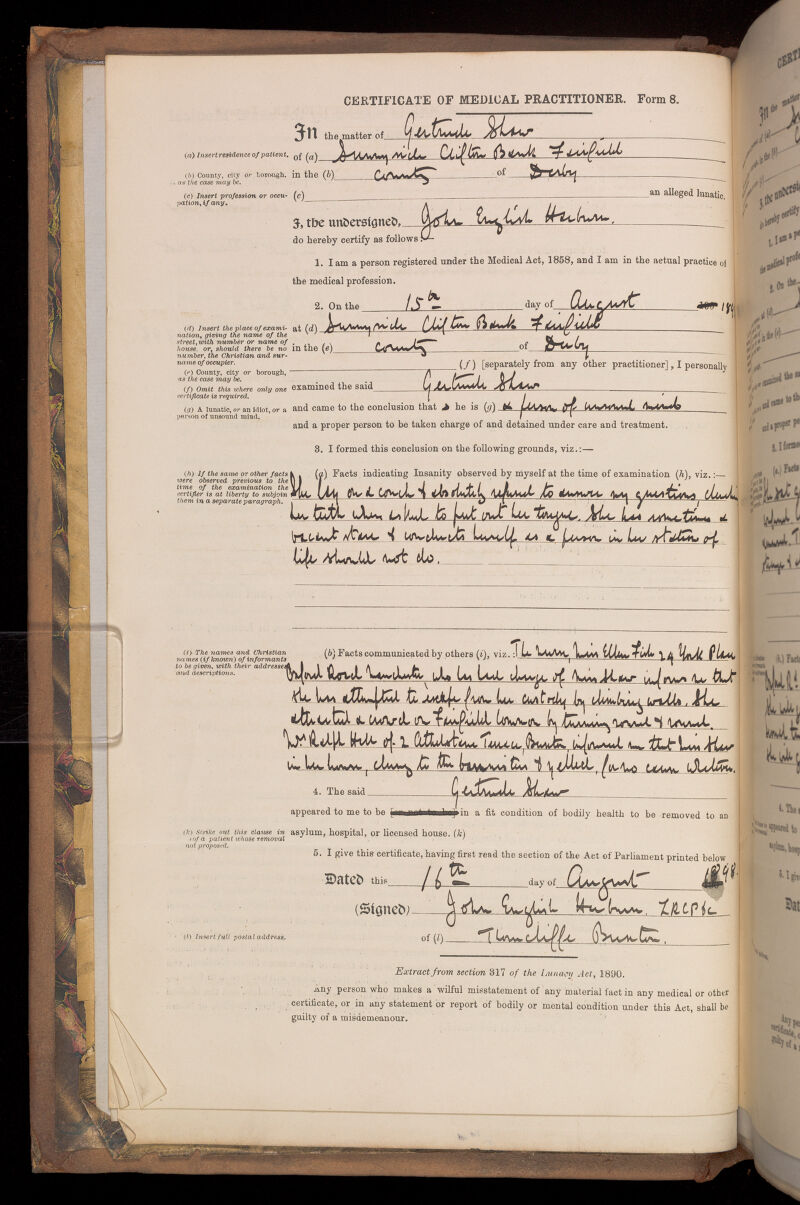 CERTIFICATE OF MEDICAL PRACTITIONER. Form 8.
In the matter of Gertrude Shaw
(a) Insert residence of patient. of (a) Sunnyside Clifton Bank Fairfield
(b) County, city or borough, as the case may be. in the (b) County of Derby
(c) Insert profession or occupation, if any. (c) an alleged lunatic,
I, the undersigned, John English Harburn,
do hereby certify as follows:—
1. I am a person registered under the Medical Act, 1858, and I am in the actual practice of
the medical profession.
2. On the 15th day of August
(d) Insert the place of examination, giving the name of the street, with number or name of house, or, should there be no number, the Christian and surname of occupier. at (d) Sunnyside Clifton Bank Fairfield
in the (e) County of Derby
(e) County, city or borough, as the case may be. (f) [separately from any other practitioner], I personally
(f) Omit this where only one certificate is required. examined the said Gertrude Shaw
(g) A lunatic, or an idiot, or a person of unsound mind. and came to the conclusion that s he is (g) a person of unsound mind
and a proper person to be taken charge of and detained under care and treatment.
3. I formed this conclusion on the following grounds, viz.:—
(h) If the same or other facts were observed previous to the time of the examination the certifier is at liberty to subjoin them in a separate paragraph.
(a) Facts indicating Insanity observed by myself at the time of examination (h), viz.:—
She lay on a couch & absolutely refused to answer my questions,
her teeth when asked to put out her tongue. She has sometimes a
vacant stare & conducts herself as a person in her station of
life should not do.
(i) The names and Christian names (if known) of informants to be given, with their addresses and descriptions.
(b) Facts communicated by others (i), viz.: The nurse, Miss Ellen Fish 29 York Place
Oxford Road Manchester, who has had charge of Miss Shaw informs me that
she has attempted to escape from her custody by climbing walls. She
attracted a crowd on Fairfield Common by turning round & round.
Mrs Ralph Hill of 2 Athelstane Terrace, Buxton, informed me that Miss Shaw
in her house, clung to the bannisters & yelled, for no cause whatever.
4. The said Gertrude Shaw
appeared to me to be [or not to be] in a fit condition of bodily health to be removed to an
(k) Strike out this clause in case of a patient whose removal is not proposed. asylum, hospital, or licensed house. (k)
5. I give this certificate, having first read the section of the Act of Parliament printed below
Dated this 16th day of August 1898.
(Signed) John English Harburn. LRCP &c
(l) Insert full postal address. of (l) Thorncliffe Buxton.
Extract from section 317 of the Lunacy Act, 1890.
Any person who makes a wilful misstatement of any material fact in any medical or other
certificate, or in any statement or report of bodily or mental condition under this Act, shall be
guilty of a misdemeanour.